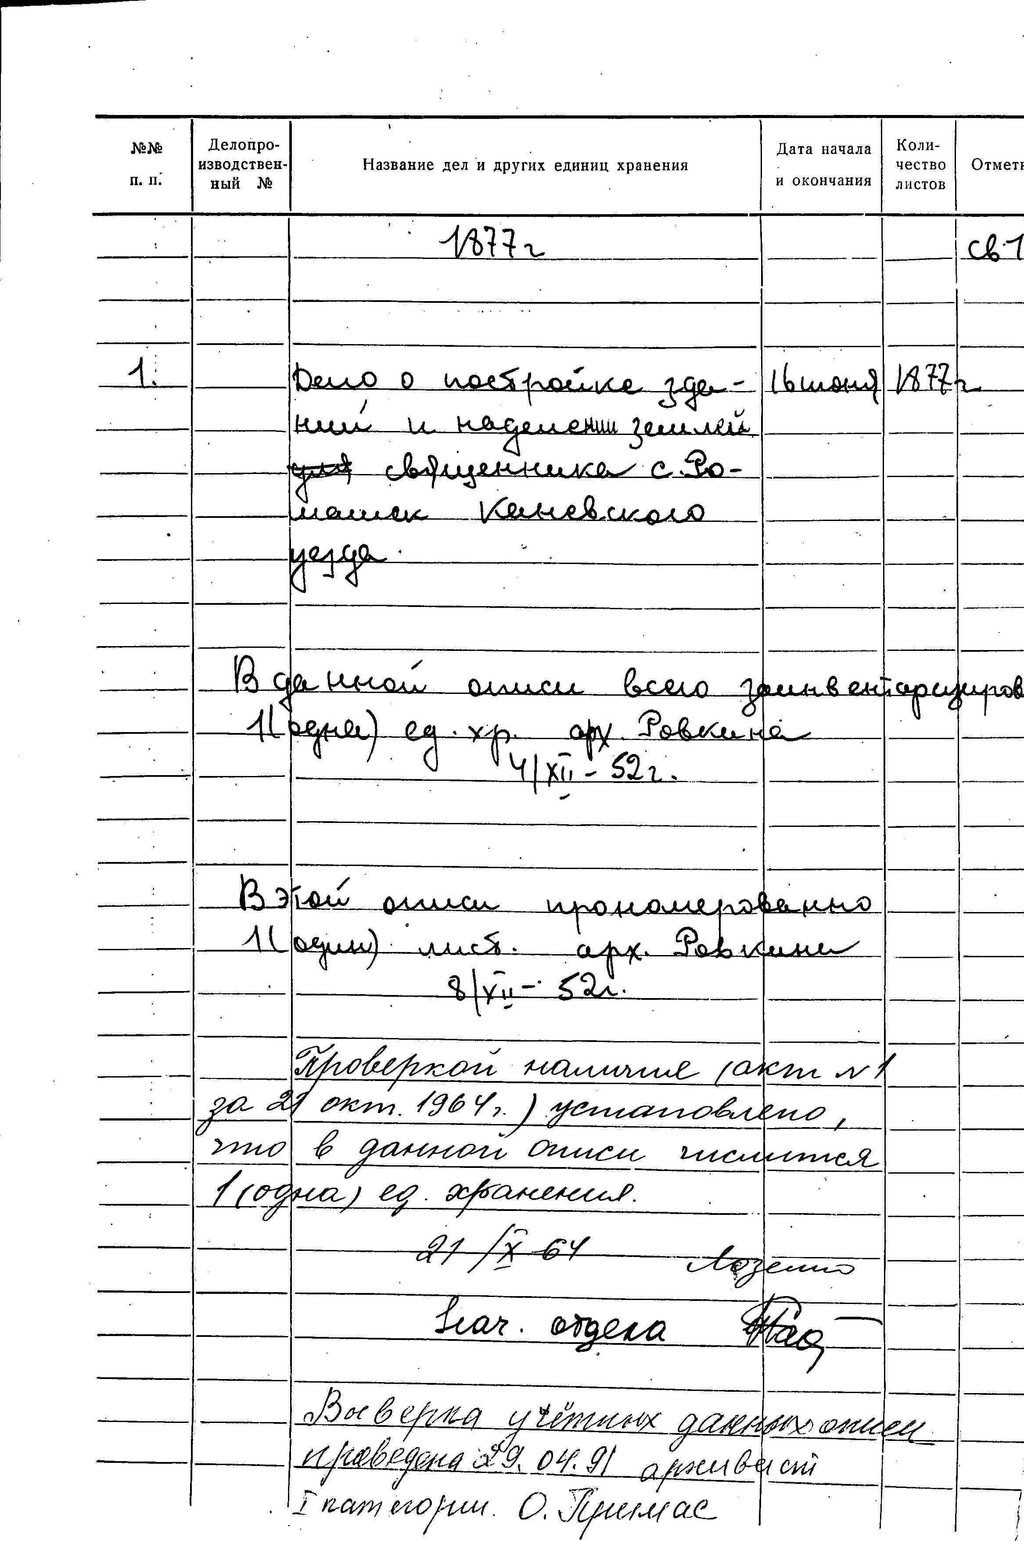 №№ п. п. Делопроизводственный № Название дел и других единиц хранения Дата начала и окончания Количество листов Отметк
1877 г
св 1
1. Дело о постройке зда- 16 июня 1877 г
ний и наделении землей
для священника с. Ро-
машек Каневского
уезда.
В данной описи всего заинвентаризиров
1 (одна) ед. хр. арх. Ровкина
4/XII - 52 г.
В этой описи прономерованно
1 (один) лист. арх. Ровкина
8/XII - 52 г.
Проверкой наличия (акт № 1
за 21 окт. 1964 г.) установлено,
что в данной описи числится
1 (одна) ед. хранения.
21/X-64
Нач. отдела
Выверка учётных данных описи
проведена 29.04.91 архивист
I категории. О. Примас